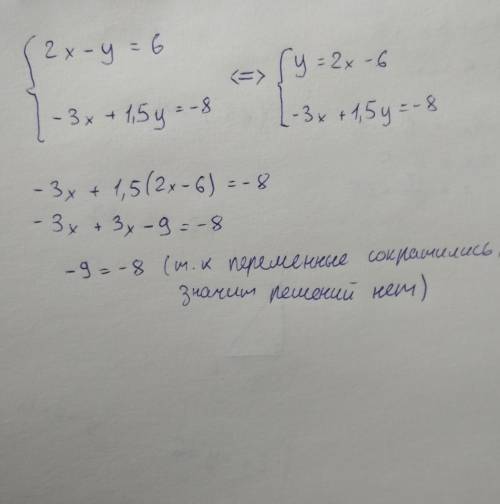 2x - y = 6
-3x + 1,5y = -8
<=>
y = 2x - 6
-3x + 1,5y = -8
-3x + 1,5(2x-6) = -8
-3x + 3x - 9 = -8
-9 = -8 (т.к переменные сократились,
значит решений нет)